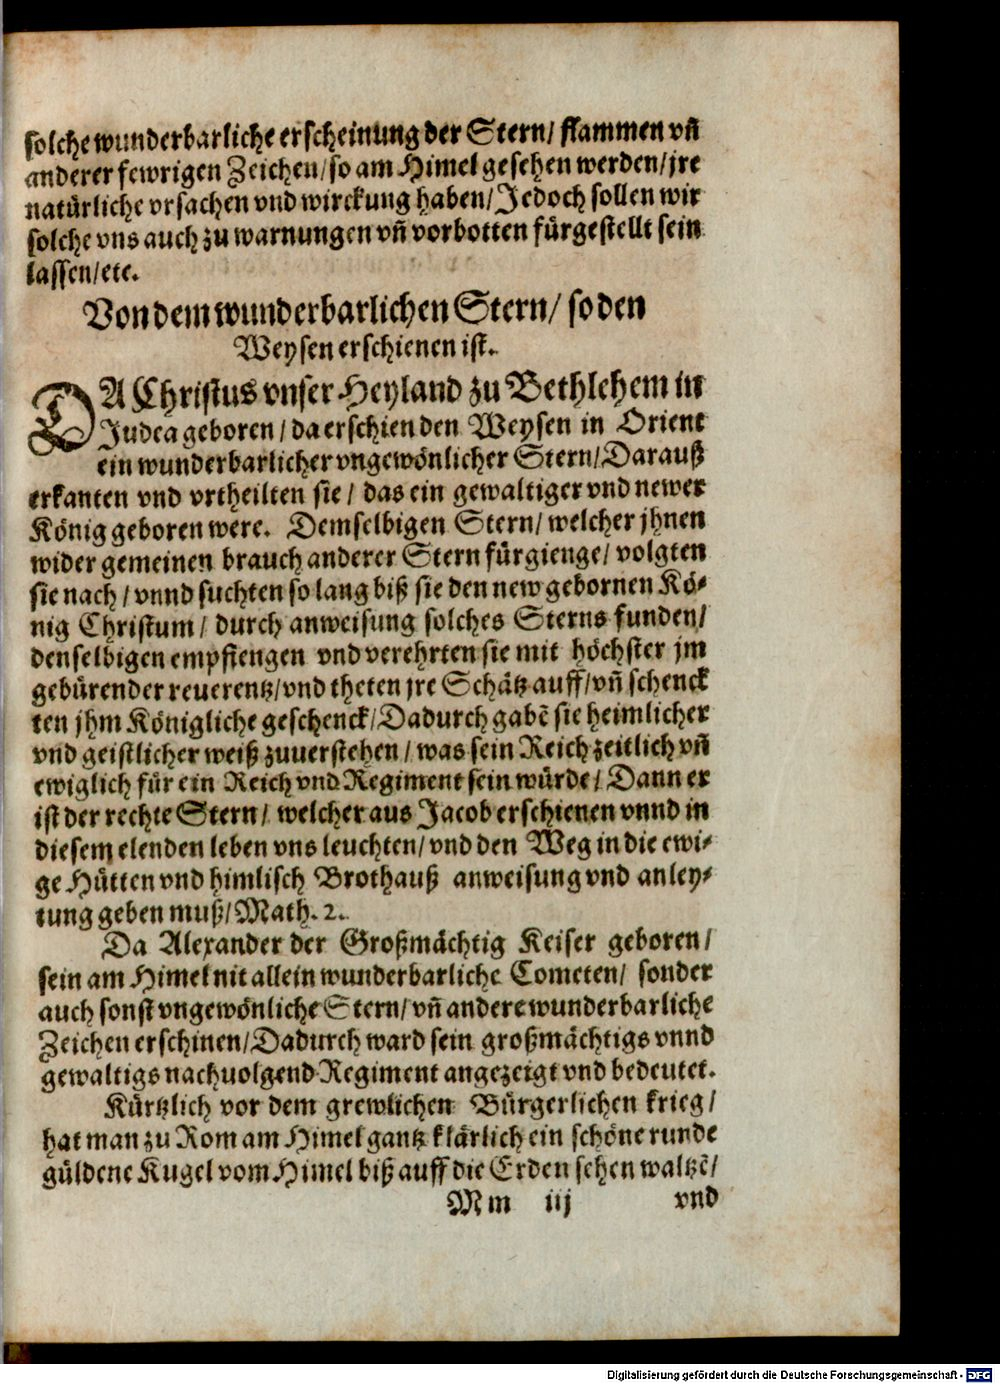 solche wunderbarliche erscheinung der Stern/ flammen vñ
anderer fewrigen Zeichen/ so am Himel gesehen werden/ jre
natürliche vrsachen vnd wirckung haben/ Jedoch sollen wir
solche vns auch zu warnungen vñ vorbotten fürgestellt sein
lassen/ etc.
Von dem wunderbarlichen Stern/ so den
Weysen erschienen ist.
DA Christus vnser Heyland zu Bethlehem in
Judea geboren/ da erschien den Weysen in Orient
ein wunderbarlicher vngewönlicher Stern/ Darauß
erkanten vnd vrtheilten sie/ das ein gewaltiger vnd newer
König geboren were. Demselbigen Stern/ welcher jhnen
wider gemeinen brauch anderer Stern fürgienge/ volgten
sie nach/ vnnd suchten so lang biß sie den new gebornen Kö-
nig Christum/ durch anweisung solches Sterns funden/
denselbigen empfiengen vnd verehrten sie mit höchster jm
gebürender reuerentz/ vnd theten jre Schätz auff/ vñ schenck
ten jhm Königliche geschenck/ Dadurch gabē sie heimlicher
vnd geistlicher weiß zuuerstehen/ was sein Reich zeitlich vñ
ewiglich für ein Reich vnd Regiment sein würde/ Dann er
ist der rechte Stern/ welcher aus Jacob erschienen vnnd in
diesem elenden leben vns leuchten/ vnd den Weg in die ewi-
ge Hütten vnd himlisch Brothauß anweisung vnd anley-
tung geben muß/ Math. 2.
Da Alexander der Großmächtig Keiser geboren/
sein am Himel nit allein wunderbarliche Cometen/ sonder
auch sonst vngewönliche Stern/ vñ andere wunderbarliche
Zeichen erschinen/ Dadurch ward sein großmächtigs vnnd
gewaltigs nachuolgend Regiment angezeigt vnd bedeutet.
Kürtzlich vor dem grewlichen Bürgerlichen krieg/
hat man zu Rom am Himel gantz klärlich ein schöne runde
güldene Kugel vom Himel biß auff die Erden sehen waltzē/
Mm iij vnd
Digitalisierung gefördert durch die Deutsche Forschungsgemeinschaft - DFG